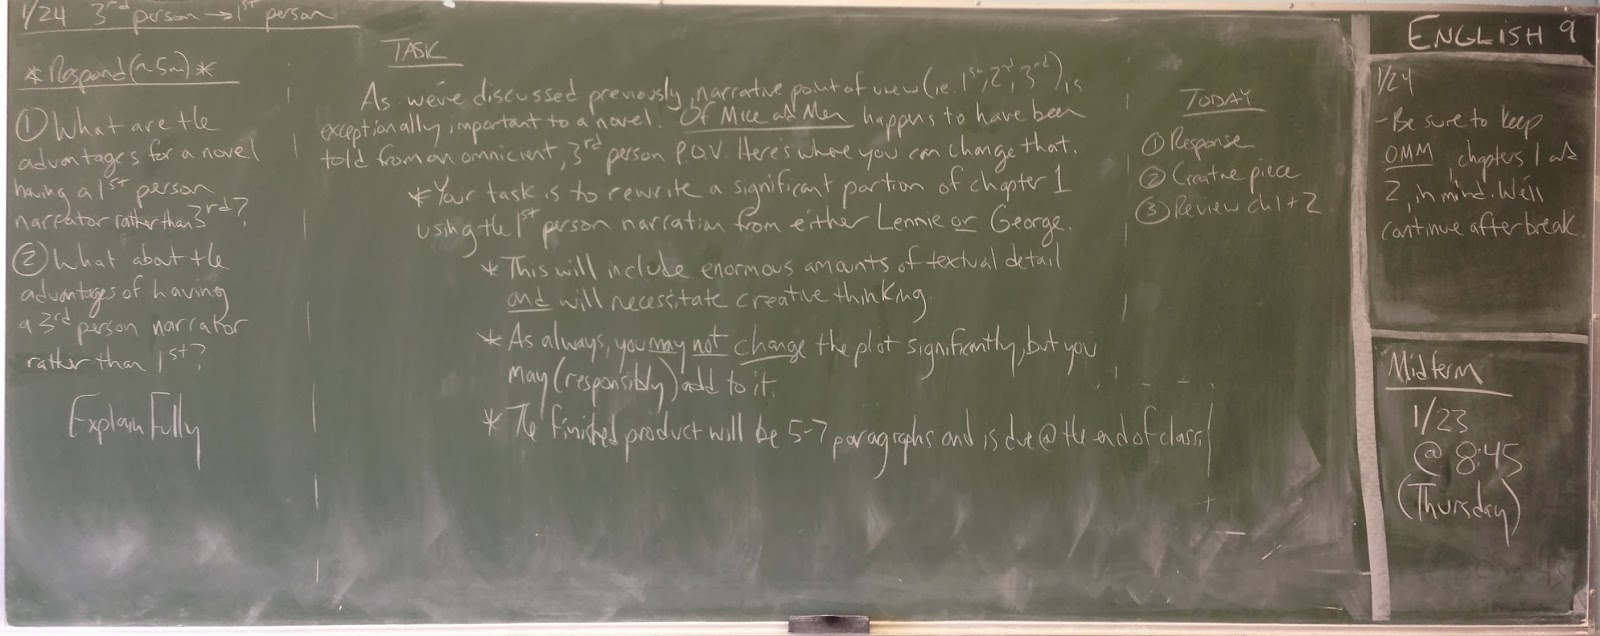 1/24 3rd person → 1st person
* Respond (~5m) *
① What are the
advantages for a novel
having a 1st person
narrator rather than 3rd?
② What about the
advantages of having
a 3rd person narrator
rather than 1st?
Explain Fully
TASK
As we've discussed previously, narrative point of view (i.e. 1st, 2nd, 3rd) is
exceptionally important to a novel. Of Mice and Men happens to have been
told from an omnicient, 3rd person P.O.V. Here's where you can change that.
* Your task is to rewrite a significant portion of chapter 1
using the 1st person narration from either Lennie or George.
* This will include enormous amounts of textual detail
and will necessitate creative thinking.
* As always, you may not change the plot significantly, but you
may (responsibly) add to it.
* The finished product will be 5-7 paragraphs and is due @ the end of class!
TODAY
① Response
② Creative piece
③ Review ch 1 + 2
ENGLISH 9
1/24
- Be sure to keep
OMM, chapters 1 and
2, in mind. We'll
continue after break.
Midterm
1/23
@ 8:45
(Thursday)